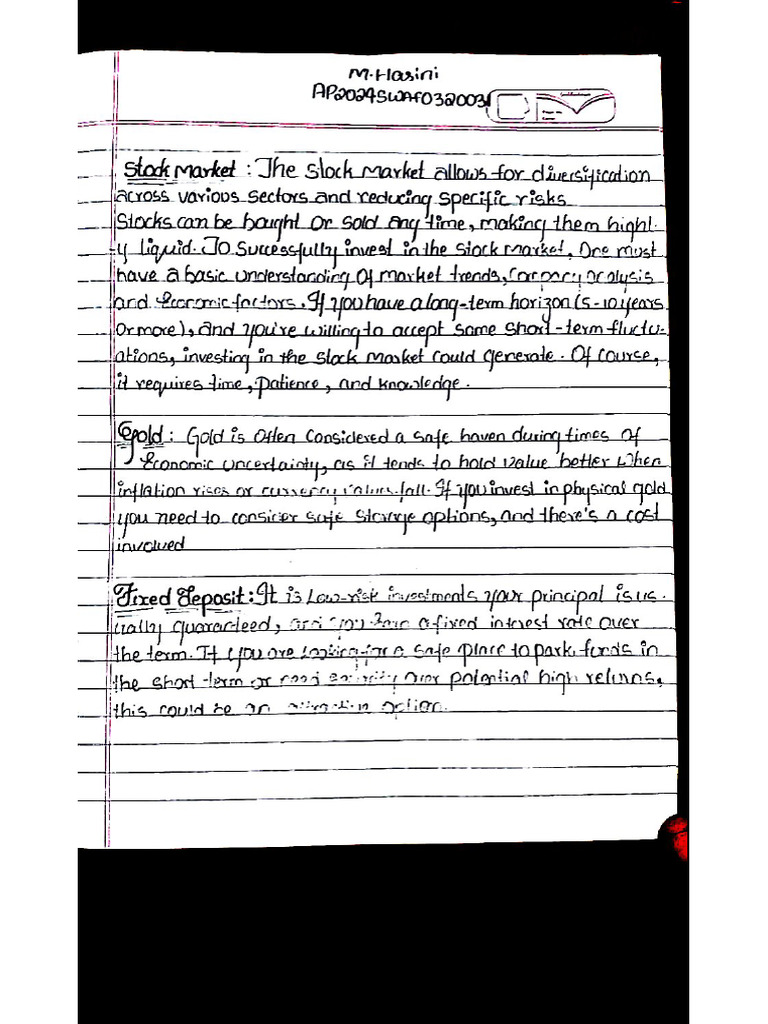 M.Hasini
AP2024SWAF032003
Stock Market : The Stock Market allows for diversification
across various sectors and reducing specific risks
Stocks can be bought or sold any time, making them highl-
y liquid. To Successfully invest in the Stock Market, One must
have a basic understanding Of market trends, Company analysis
and Economic factors. If you have a long-term horizon (5-10 years
Or more), and you're willing to accept some short-term fluctu-
ations, investing in the Stock Market could generate. Of course,
it requires time, patience, and knowledge.
Gold : Gold is Often Considered a safe haven during times Of
Economic uncertainty, as it tends to hold value better when
inflation rises or currency values fall. If you invest in physical gold
you need to consider safe storage options, and there's a cost
involved
Fixed Deposit : It is Low-risk investments your principal is us-
ually guaranteed, and you have a fixed interest rate over
the term. If you are Looking for a safe place to park funds in
the short-term or need over potential high returns,
this could be an attractive option.